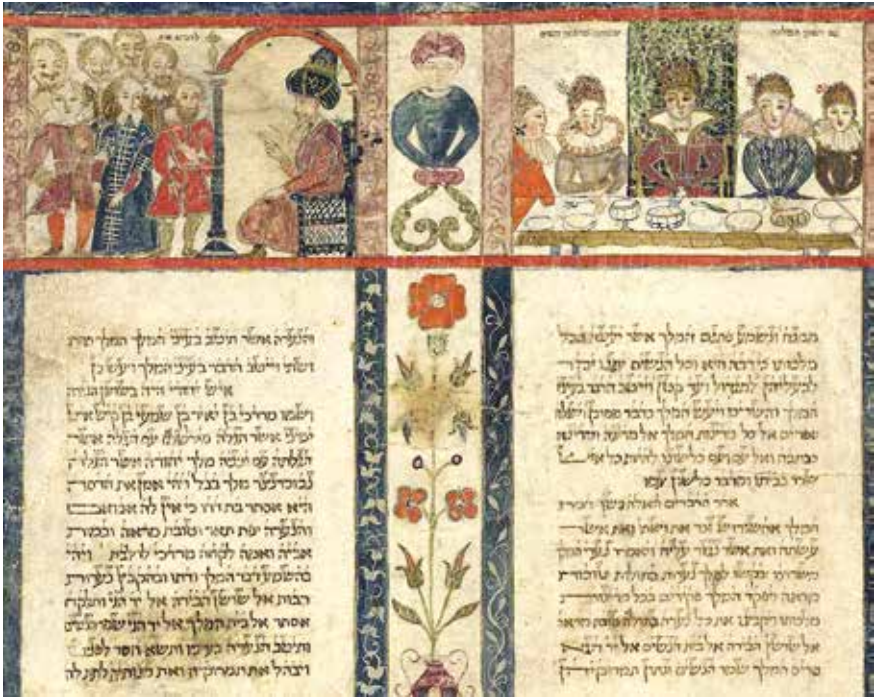 גם ושתי המלכה
עשתה משתה נשים
להביא את
ממנה ונשמע פתגם המלך אשר יעשה בכל
מלכותו כי רבה היא וכל הנשים יתנו יקר
לבעליהן למגדול ועד קטן וייטב הדבר בעיני
המלך והשרים ויעש המלך כדבר ממוכן וישלח
ספרים אל כל מדינות המלך אל מדינה ומדינה
ככתבה ואל עם ועם כלשונו להיות כל איש
שרר בביתו ומדבר כלשון עמו
אחר הדברים האלה כשך חמת
המלך אחשורוש זכר את ושתי ואת אשר
עשתה ואת אשר נגזר עליה ויאמרו נערי המלך
משרתיו יבקשו למלך נערות בתולות טובות
מראה ויפקד המלך פקידים בכל מדינות
מלכותו ויקבצו את כל נערה בתולה טובת מראה
אל שושן הבירה אל בית הנשים אל יד הגא
סריס המלך שמר הנשים ונתון תמרוקיהן
והנערה אשר תיטב בעיני המלך תמלך תחת
ושתי וייטב הדבר בעיני המלך ויעש כן
איש יהודי היה בשושן הבירה
ושמו מרדכי בן יאיר בן שמעי בן קיש איש
ימיני אשר הגלה מירושלים עם הגלה אשר
הגלתה עם יכניה מלך יהודה אשר הגלה
נבוכדנצר מלך בבל ויהי אמן את הדסה
היא אסתר בת דדו כי אין לה אב ואם
והנערה יפת תאר וטובת מראה ובמות
אביה ואמה לקחה מרדכי לו לבת ויהי
בהשמע דבר המלך ודתו ובהקבץ נערות
רבות אל שושן הבירה אל יד הגי ותלקח
אסתר אל בית המלך אל יד הגי שמר הנשים
ותיטב הנערה בעיניו ותשא חסד לפניו
ויבהל את תמרוקיה ואת מנותה לתת לה